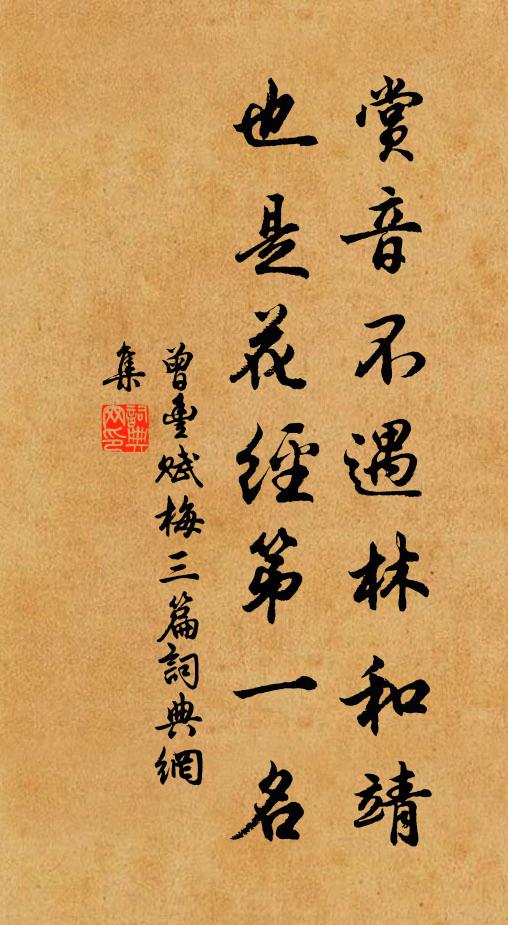 賞音不遇林和靖
也是花經第一名
曾豐賦梅三篇詞典網
集
詞典網印